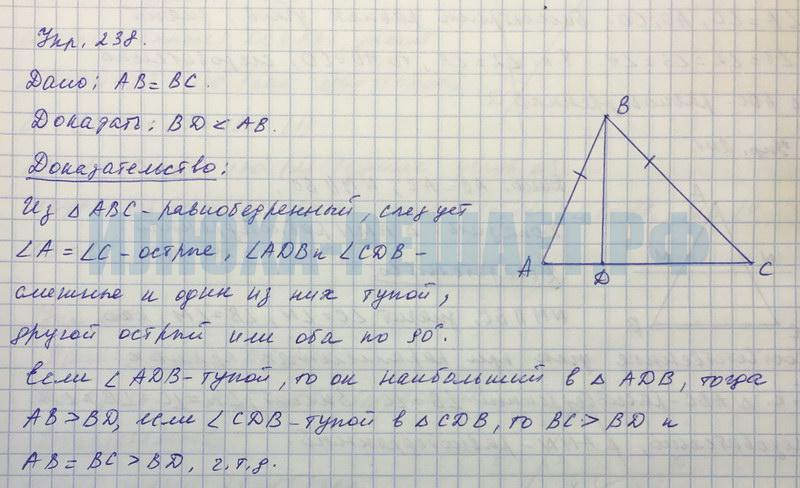 Упр. 238.
Дано: AB = BC.
Доказать: BD < AB.
Доказательство:
Из △ ABC - равнобедренный, следует
∠A = ∠C - острые, ∠ADB и ∠CDB -
смежные и один из них тупой,
другой острый или оба по 90°.
Если ∠ ADB - тупой, то он наибольший в △ ADB, тогда
AB > BD, если ∠CDB - тупой в △ CDB, то BC > BD и
AB = BC > BD, ч.т.д.
B
A
D
C
ИЛЮХА-РЕШАЕТ.РФ